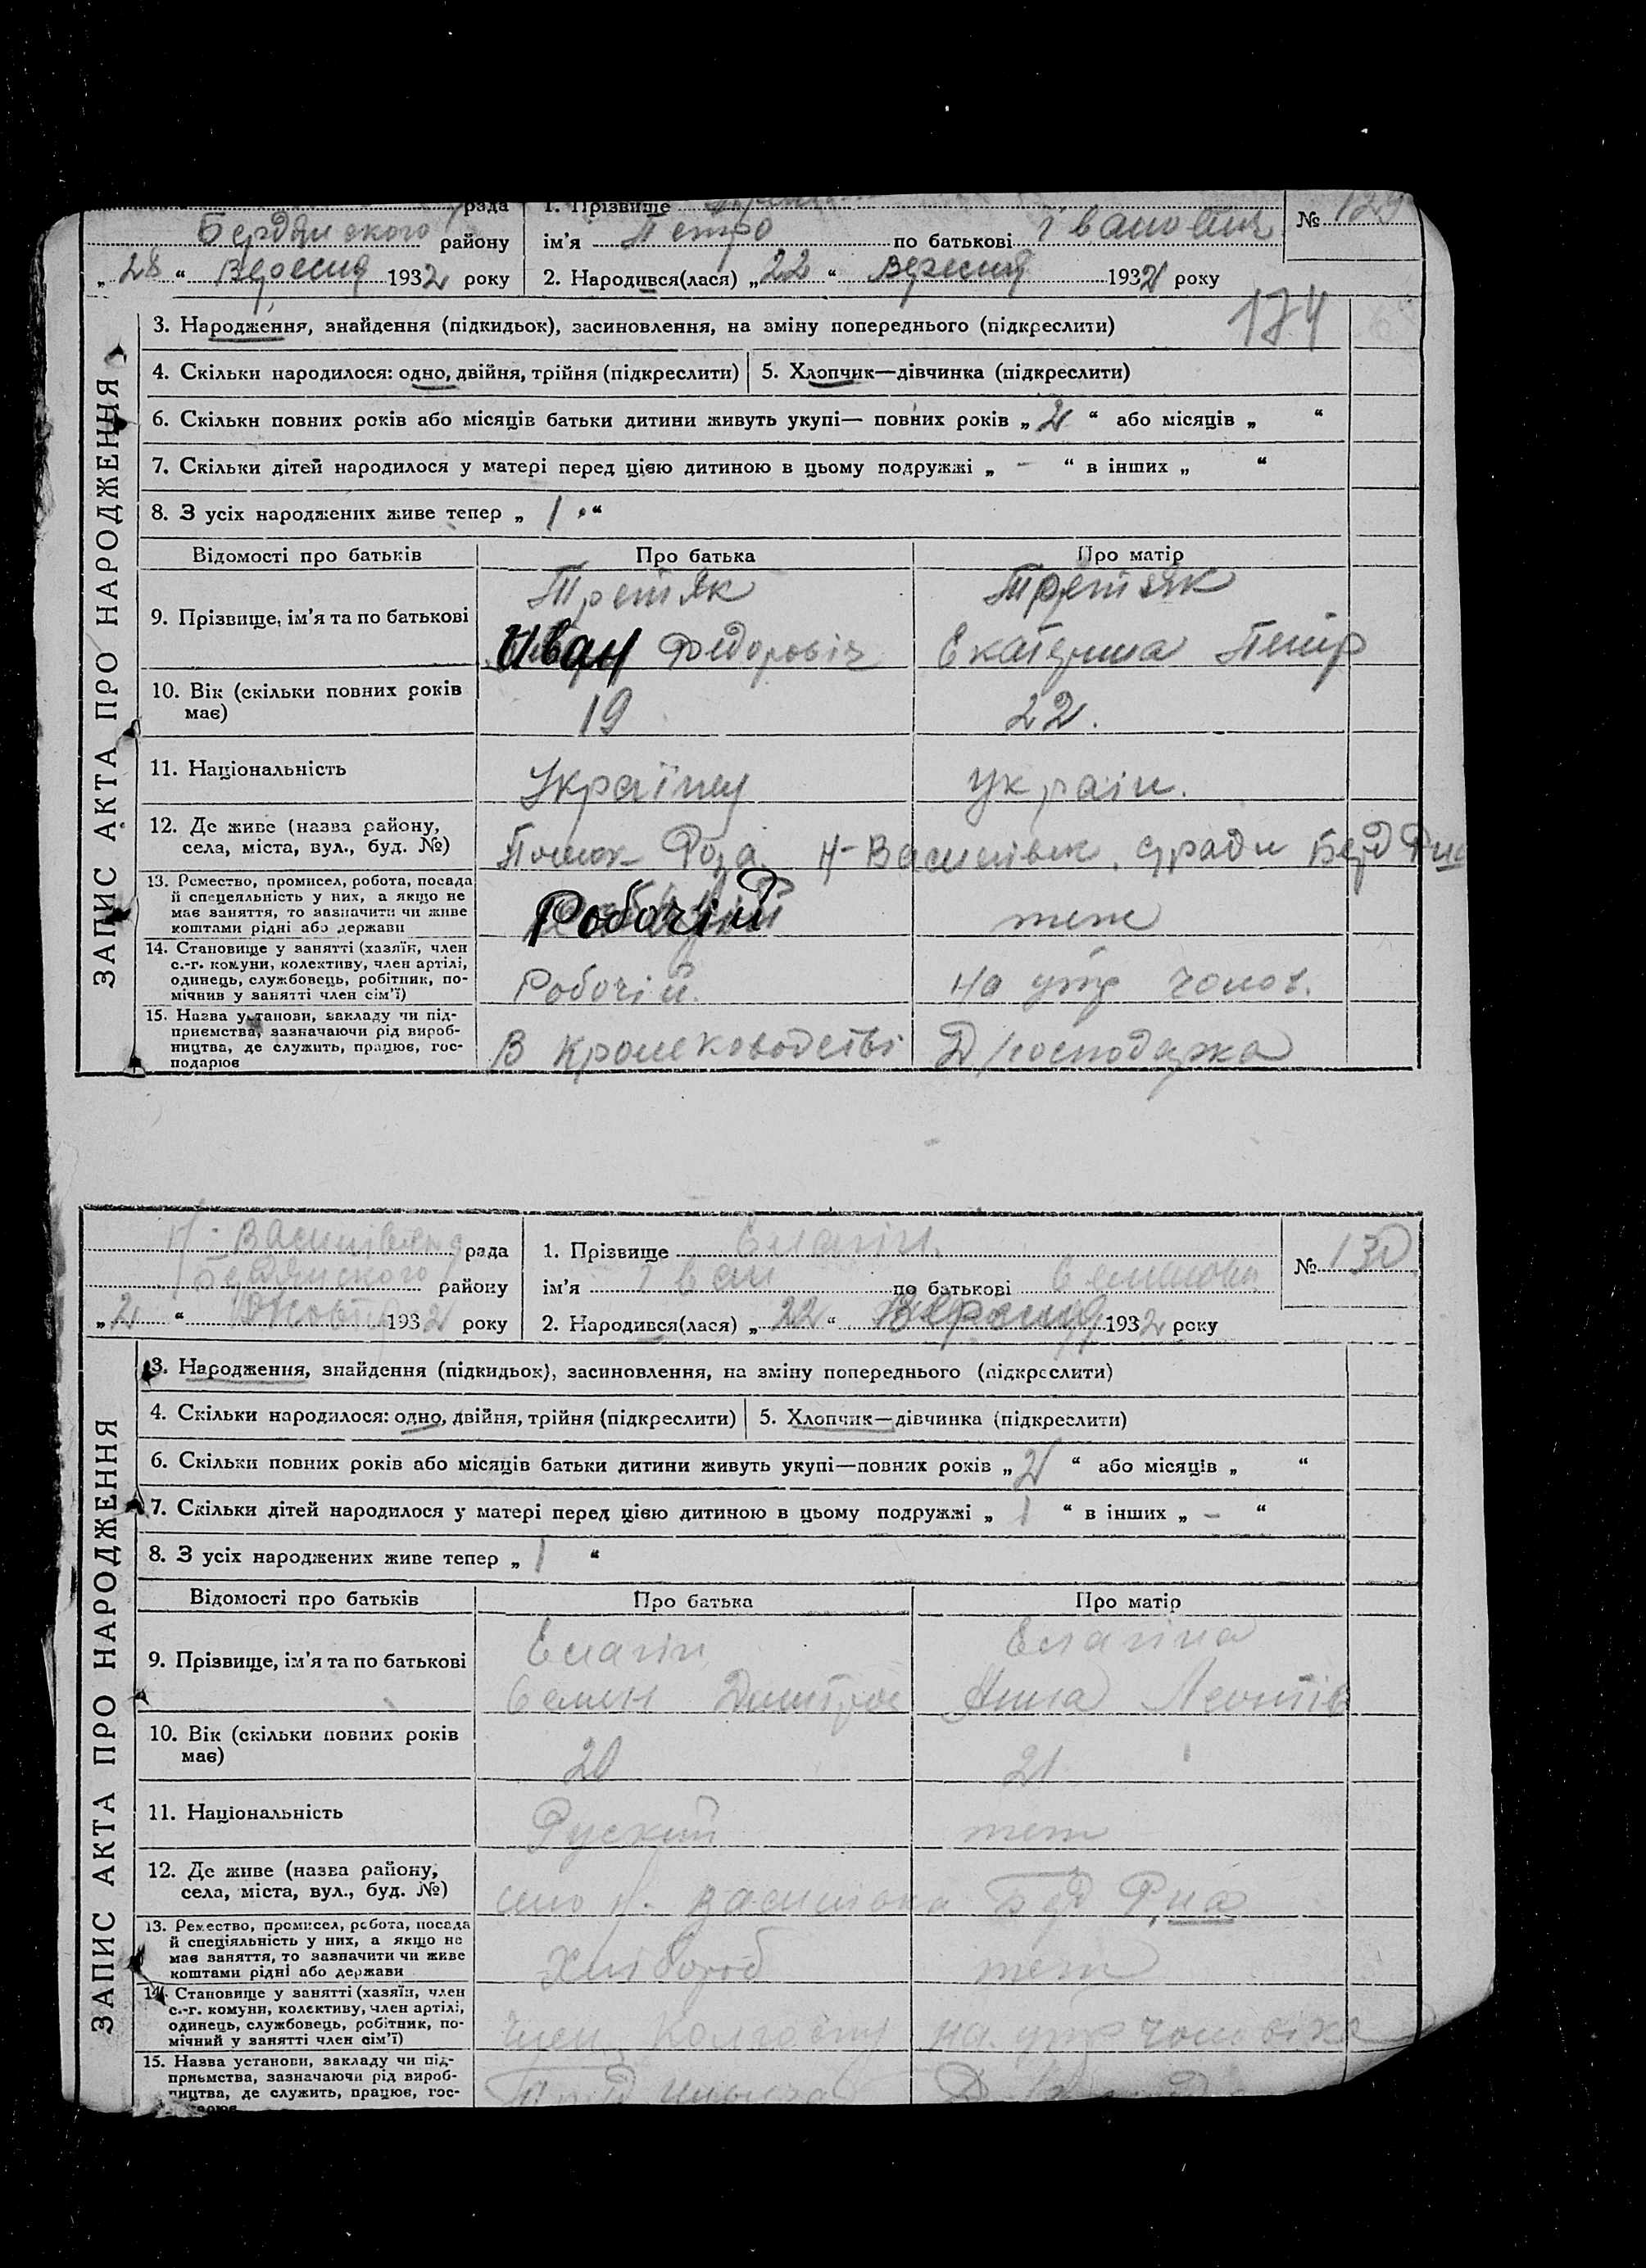 рада 1. Прізвище №129
Бердянского району ім'я Петро по батькові Іванович
„28“ Вересня 1932 року 2. Народився(лася) „22“ Вересня 1932 року
174
ЗАПИС АКТА ПРО НАРОДЖЕННЯ
3. Народження, знайдення (підкидьок), засиновлення, на зміну попереднього (підкреслити)
4. Скільки народилося: одно, двійня, трійня (підкреслити) 5. Хлопчик—дівчинка (підкреслити)
6. Скільки повних років або місяців батьки дитини живуть укупі— повних років „2“ або місяців „ “
7. Скільки дітей народилося у матері перед цією дитиною в цьому подружжі „ – “ в інших „ “
8. З усіх народжених живе тепер „ 1 “
Відомості про батьків Про батька Про матір
9. Прізвище, ім'я та по батькові Третяк Третяк
Иван Федоровіч Екатерина Петр
10. Вік (скільки повних років 19 22.
має)
11. Національність Українец україн.
12. Де живе (назва району,
села, міста, вул., буд. №) Роза Н-Васинівск. сради Берд Р-на
13. Ремество, промисел, робота, посада
й спецеяльність у них, а якщо не
має заняття, то зазначити чи живе Робочій теж
коштами рідні або держави
14. Становище у занятті (хазяїн, член
с.-г. комуни, колективу, член артілі,
одинець, службовець, робітник, по- Робочій. на утр чолов.
мічнив у занятті член сім'ї)
15. Назва установи, закладу чи під-
приємства, зазначаючи рід вироб-
ництва, де служить, працює, гос- В Кролеководстві Д/господарка
подарює
Н-Васинівська рада 1. Прізвище Елагін. №130
Бердянского району ім'я Іван по батькові Семенович
„2“ Жовтня 1932 року 2. Народився(лася) „22“ Вересня 1932 року
ЗАПИС АКТА ПРО НАРОДЖЕННЯ
3. Народження, знайдення (підкидьок), засиновлення, на зміну попереднього (підкреслити)
4. Скільки народилося: одно, двійня, трійня (підкреслити) 5. Хлопчик—дівчинка (підкреслити)
6. Скільки повних років або місяців батьки дитини живуть укупі—повних років „2“ або місяців „ “
7. Скільки дітей народилося у матері перед цією дитиною в цьому подружжі „ 1 “ в інших „ – “
8. З усіх народжених живе тепер „ 1 “
Відомості про батьків Про батька Про матір
9. Прізвище, ім'я та по батькові Елагін Елагіна
Семен Дмитров Анна Леонтів
10. Вік (скільки повних років 20 21
має)
11. Національність Руский теж
12. Де живе (назва району,
села, міста, вул., буд. №) село Н. Василівка Берд Р,на
13. Ремество, промисел, робота, посада
й спеціяльність у них, а якщо не
має заняття, то зазначити чи живе Хлібороб теж
коштами рідні або держави
14. Становище у занятті (хазяїн, член
с.-г. комуни, колективу, член артілі,
одинець, службовець, робітник, по- член колгоспу на утр чоловіка
мічний у занятті член сім'ї)
15. Назва установи, закладу чи під-
приємства, зазначаючи рід вироб-
ництва, де служить, працює, гос-